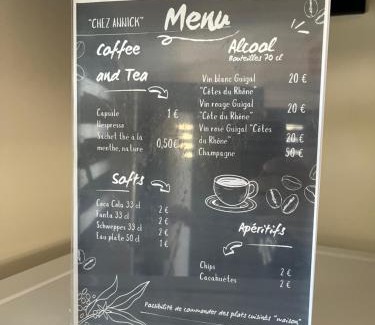 "CHEZ ANNICK"
Menu
Coffee
and Tea
Capsule
Nespresso
1 €
Sachet thé à la
menthe, nature
0,50€
Softs
Coca Cola 33 cl 2 €
Fanta 33 cl 2 €
Schweppes 33 cl 2 €
Eau plate 50 cl 1 €
Alcool
Bouteilles 70 cl
Vin blanc Guigal 20 €
"Côtes du Rhône"
Vin rouge Guigal 20 €
"Côte du Rhône"
Vin rosé Guigal "Côtes
du Rhône" 20 €
Champagne 50 €
Apéritifs
Chips 2 €
Cacahuètes 2 €
Possibilité de commander des plats cuisinés "maison"